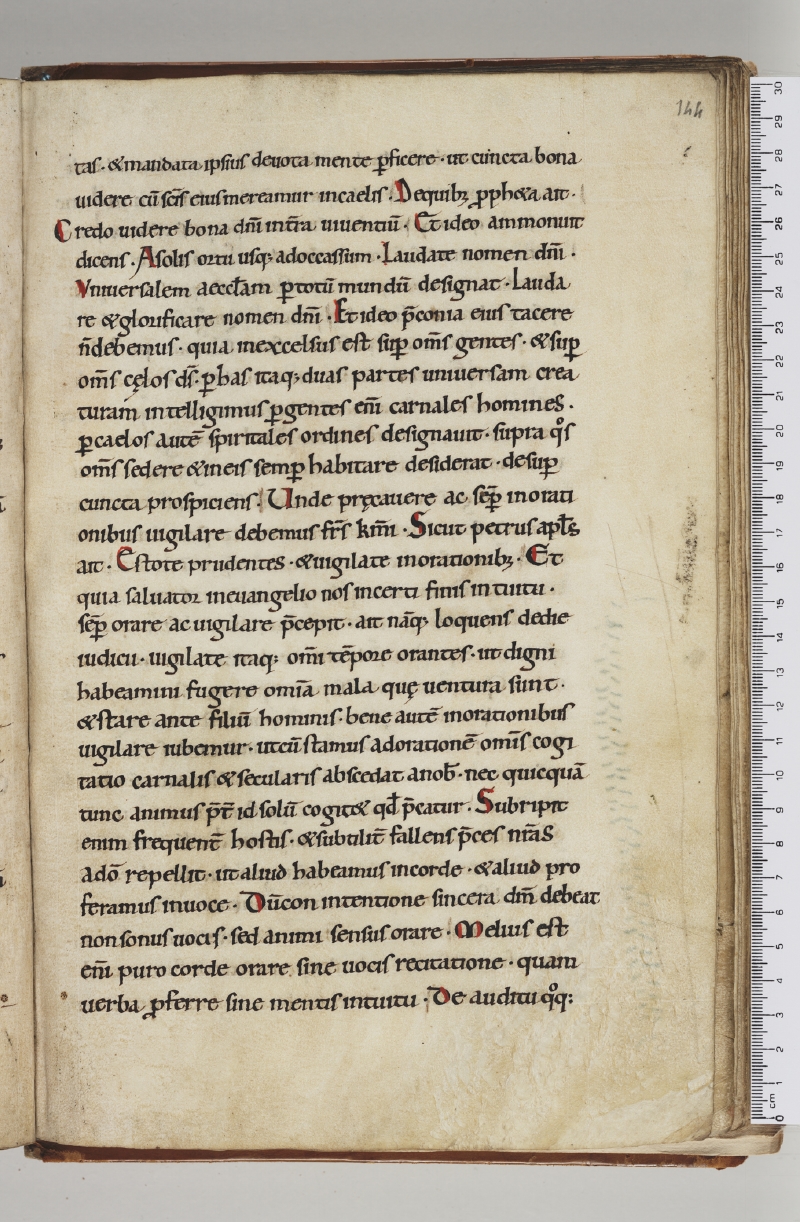 144
tas · &mandata ipsius deuota mente ꝑficere · ut cuncta bona
uidere cū scīs eius mereamur incaelis · Dequibꝫ ꝓph&a ait ·
Credo uidere bona dn̄i intr̄a uiuentiū · Et ideo ammonuit
dicens · Asolis ortu usqꝫ adoccassum · Laudate nomen dn̄i ·
Vniuersalem aecclam̄ ꝑtotū mundū designat · Lauda
re &glorificare nomen dn̄i · Et ideo p̄conia eius tacere
n̄debemus · quia inexcelsus est suꝑ om̄s gentes · &suꝑ
om̄s cęlos ds̄ · ꝑhas itaqꝫ duas partes uniuersam crea
turam intelligimus ꝑgentes eni̅ carnales homines ·
ꝑcaelos autē spiritales ordines designauit · supra qͦs
om̄s sedere &ineis semꝑ habitare desiderat · desuꝑ
cuncta prospiciens · Unde pręcauere ac sēꝑ inorati
onibus uigilare debemus frs̄ km̄i · Sicut petrus apls̄
ait · Estote prudentes · &uigilate inorationibꝫ · Et
quia saluator ineuangelio nos incerti finis intuitu ·
sēꝑ orare ac uigilare p̄cepit · ait nāqꝫ loquens de die
iudicii · uigilate itaqꝫ omī tēpore orantes · ut digni
habeamini fugere omīa mala quę uentura sunt ·
&stare ante filiū hominis · bene autē inorationibus
uigilare iubemur · utcū stamus adorationē omīs cogi
tatio carnalis &secularis abscedat anob̄ · nec quicquā
tunc animus p̄t̄ id solū cogit& qd̄ p̄catur · Subripit
enim frequent̄ hostis · &subtilit̄ fallens p̄ces nrās
Adō repellit · ut aliud habeamus incorde · &aliud pro
feramus inuoce · Dūcon intentione sincera dm̄ debeat
non sonus uocis · sed animi sensus orare · Melius est
eni̅ puro corde orare sine uocis recitatione · quam
uerba ꝓferre sine mentis intuitu · De auditu qͦqꝫ